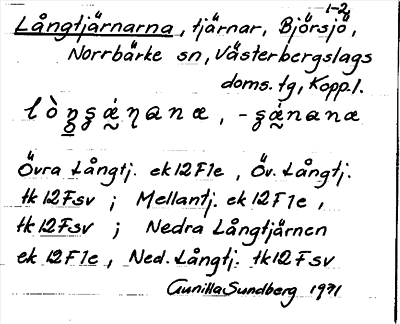 1-2
Långtjärnarna, tjärnar, Björsjö,
Norrbärke sn, Västerbergslags
doms. tg, Kopp. l.
Övra Långtj. ek 12 F 1e, Öv. Långtj.
tk 12 Fsv ; Mellantj. ek 12 F 1e,
tk 12 Fsv ; Nedra Långtjärnen
ek 12 F 1e, Ned. Långtj. tk 12 Fsv
Gunilla Sundberg 1971